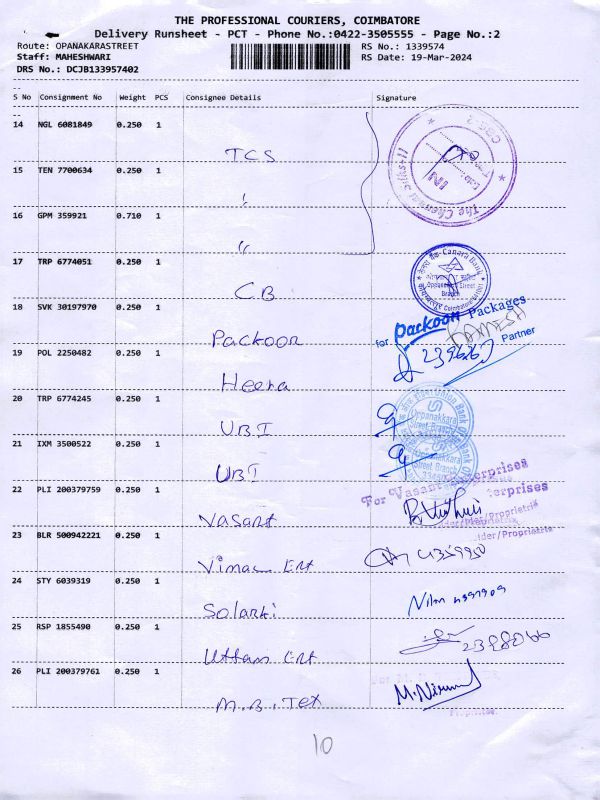 THE PROFESSIONAL COURIERS, COIMBATORE
Delivery Runsheet - PCT - Phone No.:0422-3505555 - Page No.:2
Route: OPANAKARASTREET RS No.: 1339574
Staff: MAHESHWARI RS Date: 19-Mar-2024
DRS No.: DCJB133957402
S No Consignment No Weight PCS Consignee Details Signature
14 NGL 6081849 0.250 1
TCS
15 TEN 7700634 0.250 1
16 GPM 359921 0.710 1
The Chennai Silks-11
CBE-2
17 TRP 6774051 0.250 1
CB
Canara Bank
Oppanakara Street
Branch
18 SVK 30197970 0.250 1
Packoor
for Packoon Packages
RAMESH
Partner
19 POL 2250482 0.250 1
Heera
20 TRP 6774245 0.250 1
UBI
Union Bank
Oppanakkara
Street Branch
21 IXM 3500522 0.250 1
UBI
Oppanakkara
Street Branch
22 PLI 200379759 0.250 1
Vasant
For Vasant Enterprises
Enterprises
23 BLR 500942221 0.250 1
Vimac Ent
24 STY 6039319 0.250 1
Solanki
25 RSP 1855490 0.250 1
Uttam Ent
26 PLI 200379761 0.250 1
M.B. Tex
M. Nirmal
10